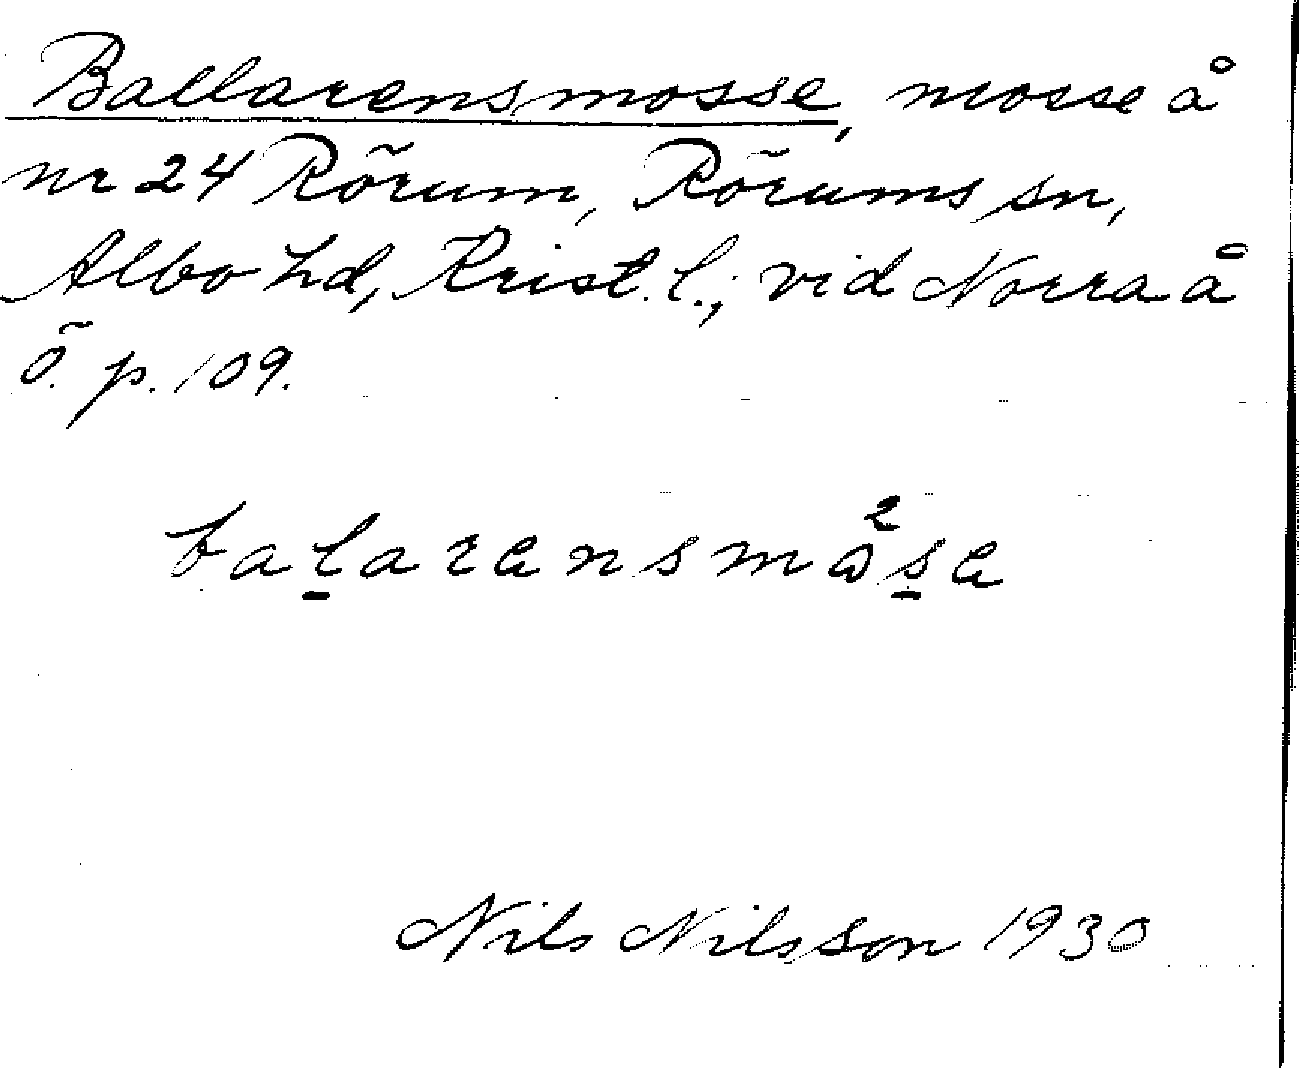 Ballarensmosse, mosse å
nr 24 Rõrum, Rõrums sn,
Albo hd, Krist. l.; vid Norra å
õ. p. 109.
bal̲arensmå²s̲e
Nils Nilsson 1930